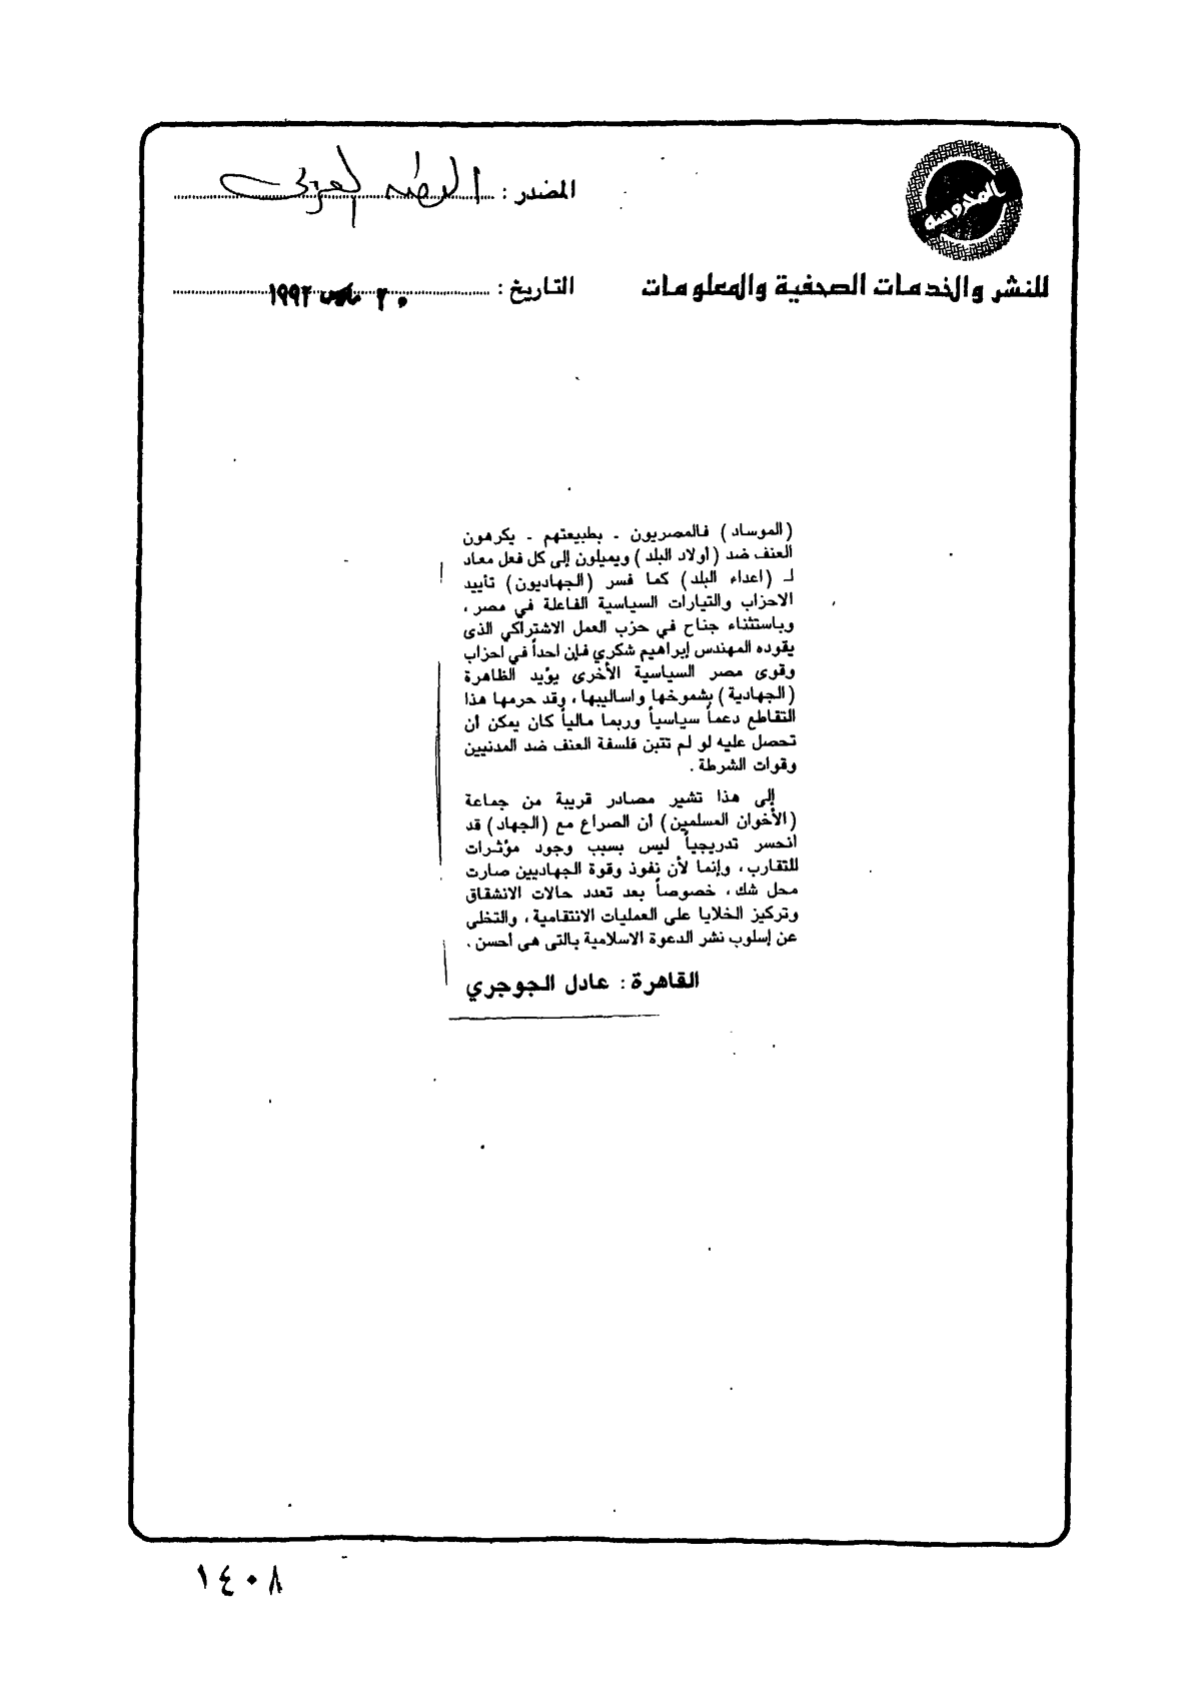 المحروسة
للنشر والخدمات الصحفية والمعلومات
المصدر :
التاريخ : ٣٠ مارس ١٩٩٢
(الموساد) فالمصريون - بطبيعتهم - يكرهون
العنف ضد (أولاد البلد) ويميلون إلى كل فعل معاد
لـ (اعداء البلد) كما فسر (الجهاديون) تأييد
الاحزاب والتيارات السياسية الفاعلة في مصر ،
وباستثناء جناح في حزب العمل الاشتراكي الذى
يقوده المهندس إبراهيم شكري فإن احداً في احزاب
وقوى مصر السياسية الأخرى يؤيد الظاهرة
(الجهادية) بشموخها واساليبها ، وقد حرمها هذا
التقاطع دعماً سياسياً وربما مالياً كان يمكن أن
تحصل عليه لو لم تتبن فلسفة العنف ضد المدنيين
وقوات الشرطة .
إلى هذا تشير مصادر قريبة من جماعة
(الأخوان المسلمين) أن الصراع مع (الجهاد) قد
انحسر تدريجياً ليس بسبب وجود مؤثرات
للتقارب ، وإنما لأن نفوذ وقوة الجهاديين صارت
محل شك ، خصوصاً بعد تعدد حالات الانشقاق
وتركيز الخلايا على العمليات الانتقامية ، والتخلى
عن إسلوب نشر الدعوة الاسلامية بالتى هى أحسن .
القاهرة : عادل الجوجري
١٤٠٨